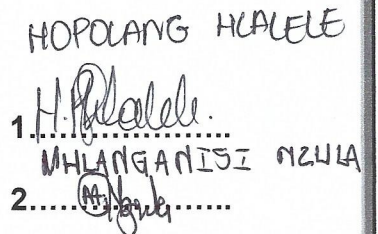 HOPOLANG HLALELE
1. H. Hlalele.
MHLANGANISI NZULA
2.